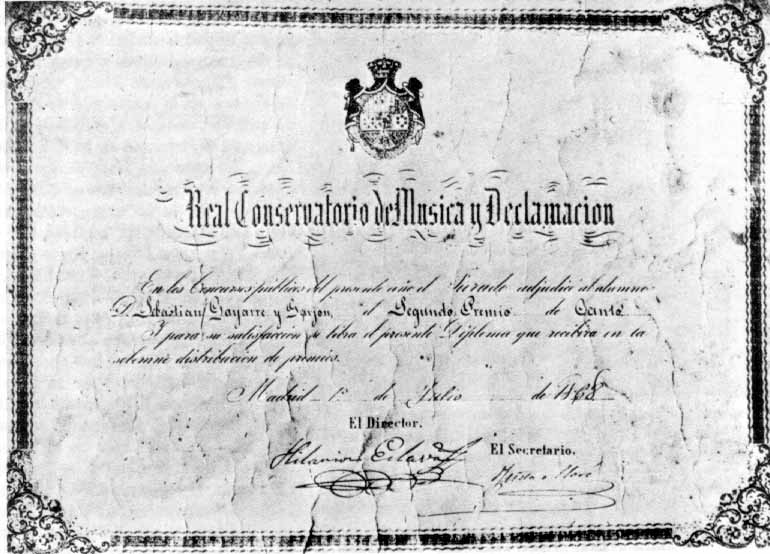 Real Conservatorio de Musica y Declamacion
En los Concursos públicos del presente año el Jurado adjudicó al alumno
D. Sebastian Gayarre y Garjon, el Segundo Premio de Canto
Y para su satisfacción se libra el presente Diploma que recibirá en la
solemne distribución de premios.
Madrid 1º de Julio de 1868
El Director.
Hilarion Eslava
El Secretario.